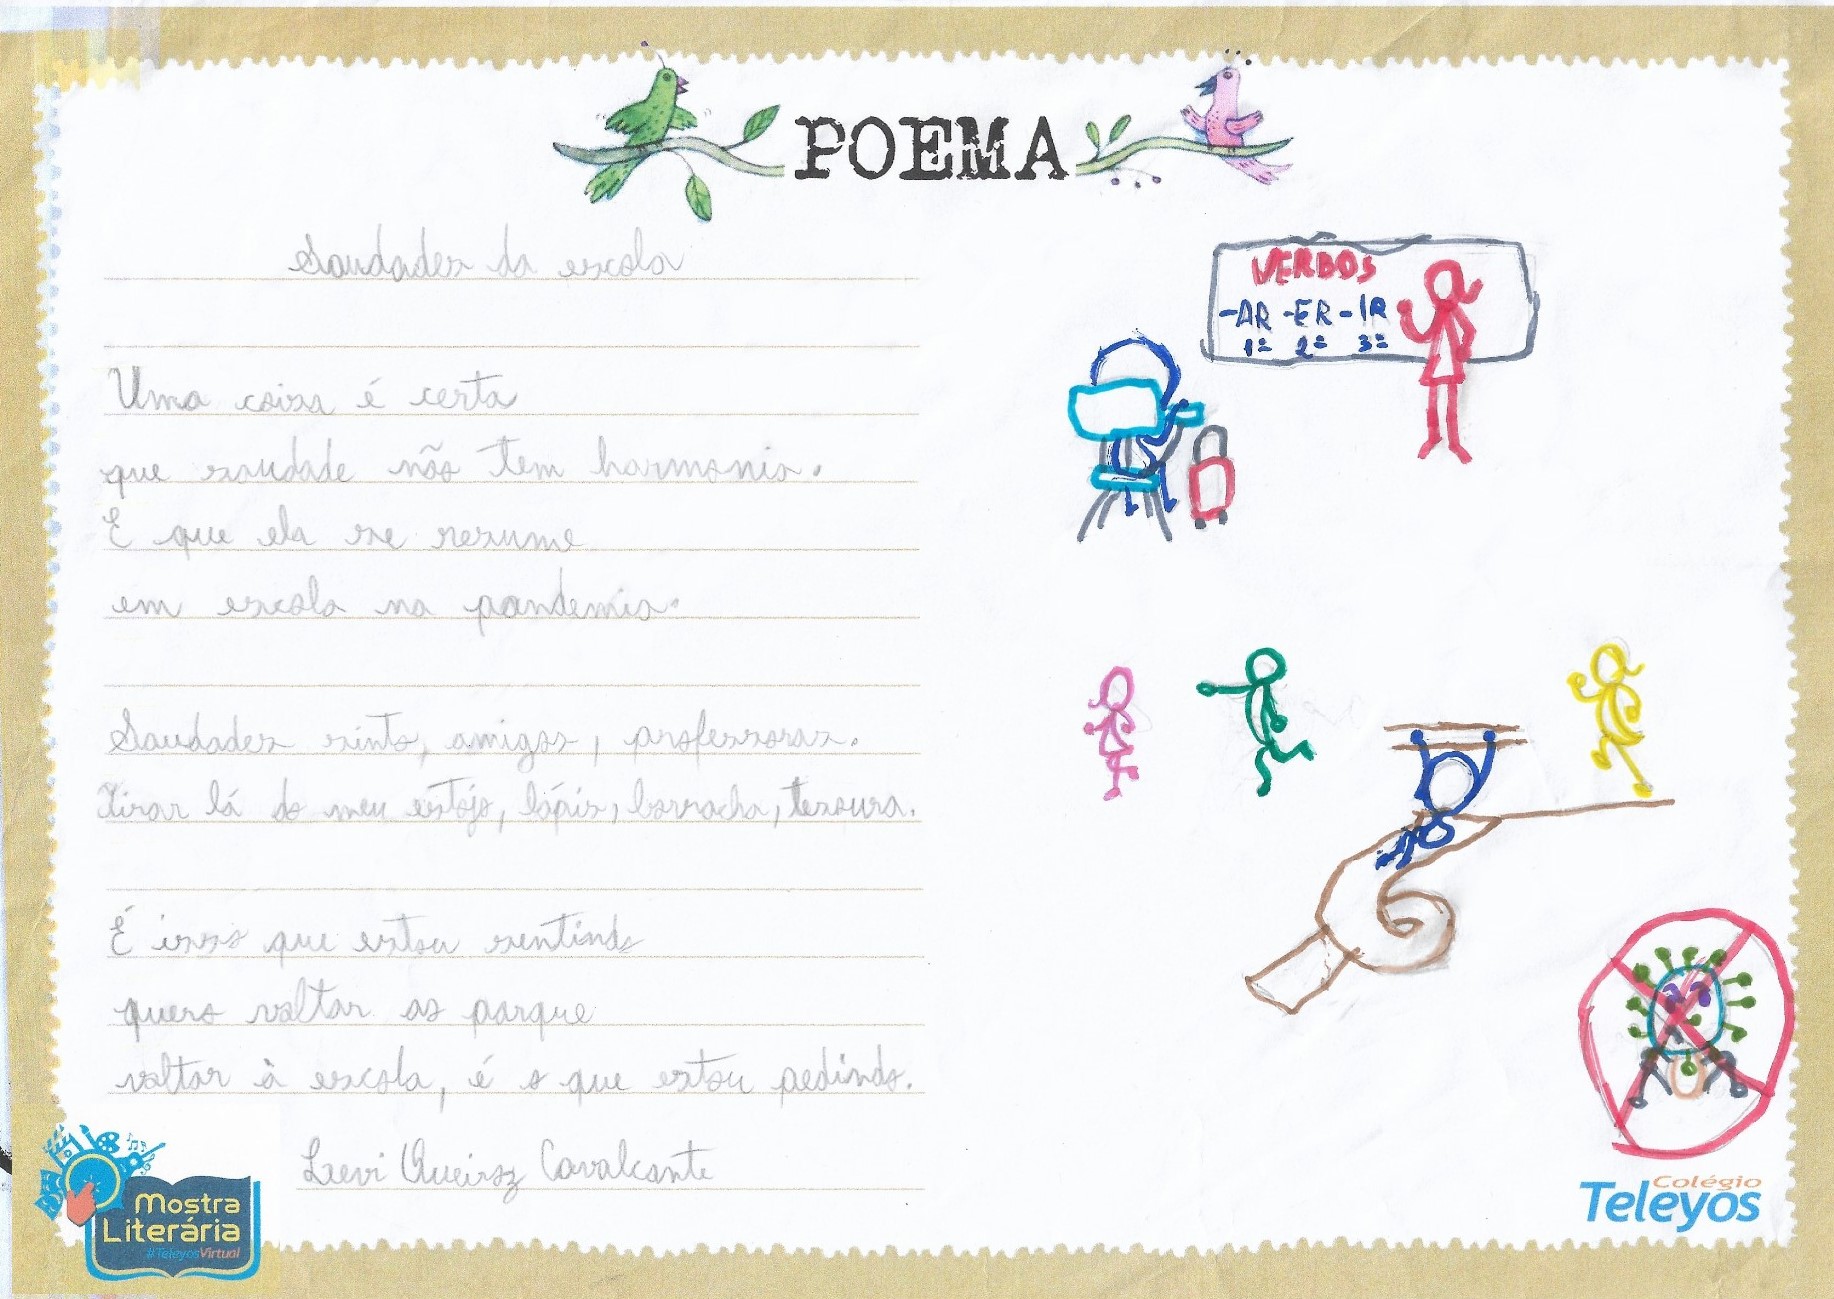 POEMA
Saudades da escola
Uma coisa é certa
que saudade não tem harmonia.
E que ela se resume
em escola na pandemia.
Saudades sinto, amigos, professoras.
Tirar lá do meu estojo, lápis, borracha, tesoura.
É isso que estou sentindo
quero voltar ao parque
voltar à escola, é o que estou pedindo.
Levi Queiroz Cavalcante
VERBOS
-AR -ER -IR
1ª 2ª 3ª
Mostra
Literária
#TeleyosVirtual
Colégio
Teleyos